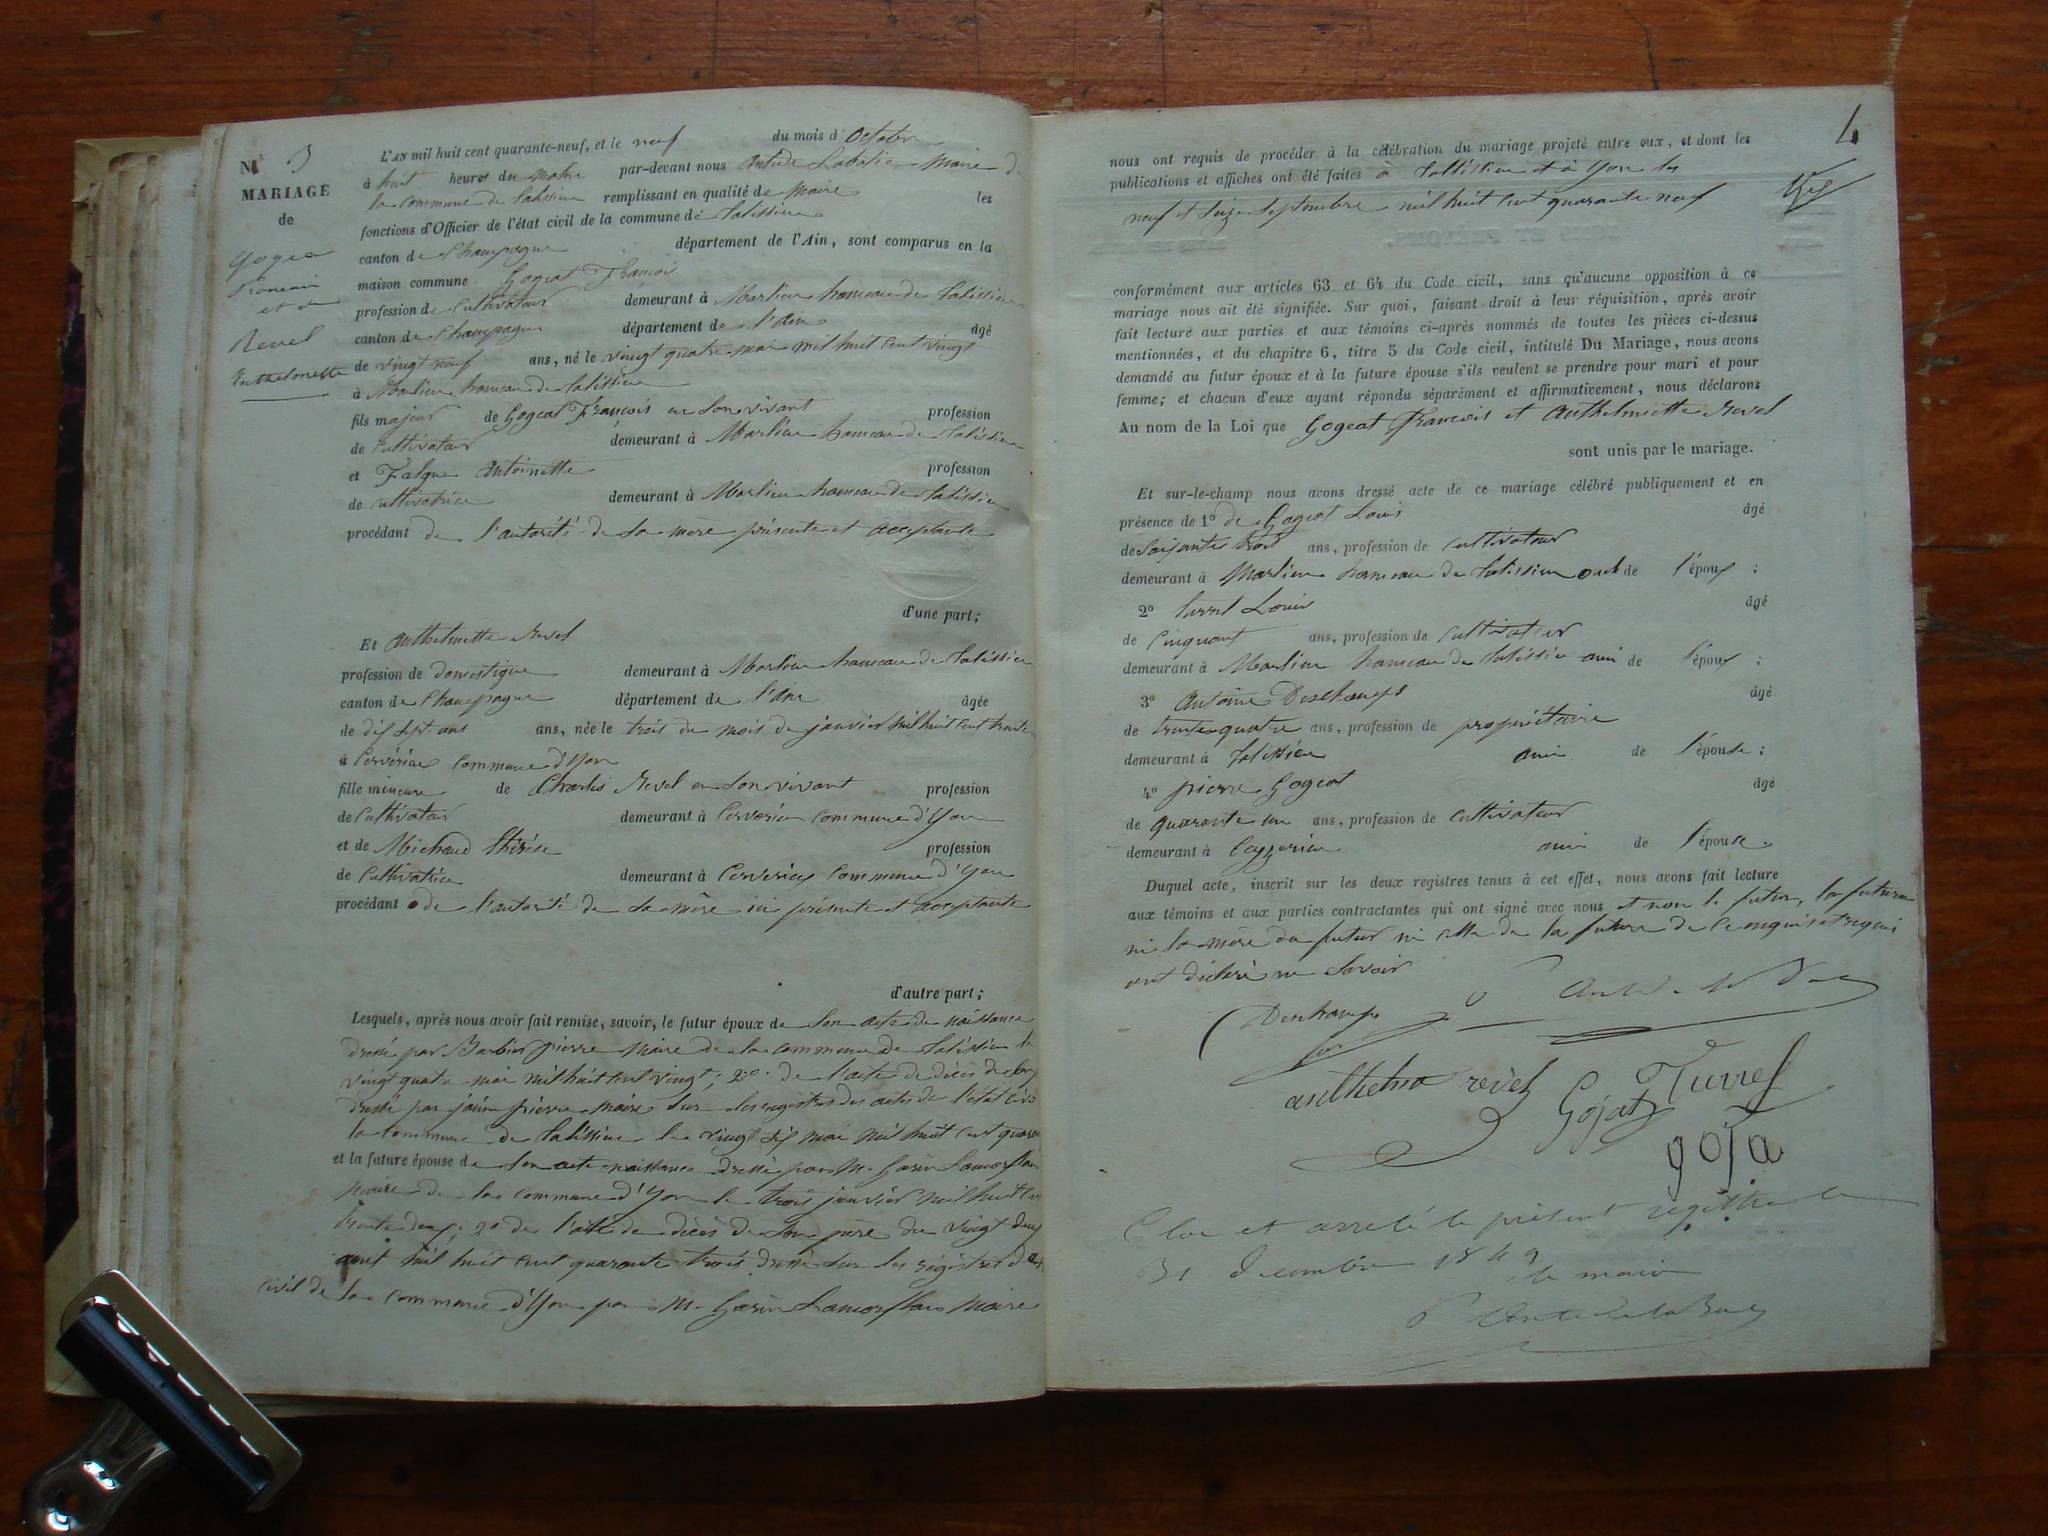 N° 3
MARIAGE
de
Gogea
François
et de
Revel
Anthelmette
L'AN mil huit cent quarante-neuf, et le neuf du mois d'Octobre
à huit heures du matin par-devant nous Maire de
la commune de Talissieu remplissant en qualité de Maire les
fonctions d'Officier de l'état civil de la commune de Talissieu
canton de Champagne département de l'Ain, sont comparus en la
maison commune Gogeat François
profession de Cultivateur demeurant à Marlieu hameau de Talissieu
canton de Champagne département de l'Ain âgé
de vingt neuf ans, né le vingt quatre mai mil huit cent vingt
à Marlieu hameau de Talissieu
fils majeur de Gogeat François en son vivant profession
de Cultivateur demeurant à Marlieu hameau de Talissieu
et Falque Antoinette profession
de cultivatrice demeurant à Marlieu hameau de Talissieu
procédant de l'autorité de sa mère présente et acceptante
d'une part;
Et Anthelmette Revel
profession de domestique demeurant à Marlieu hameau de Talissieu
canton de Champagne département de l'Ain âgée
de dix sept ans ans, née le trois du mois de janvier mil huit cent trente
à Cerveria commune d'Yon
fille mineure de Charles Revel en son vivant profession
de Cultivateur demeurant à commune d'Yon
et de Michaud Thérèse profession
de Cultivatrice demeurant à commune d'Yon
procédant de l'autorité de sa mère ici présente et acceptante
d'autre part;
Lesquels, après nous avoir fait remise, savoir, le futur époux de son acte de naissance
dressé par Barbier pierre Maire de la commune de Talissieu le
vingt quatre mai mil huit cent vingt; 2° de l'acte de décès de
dressé par pierre Maire sur les registres des actes de l'état civil
la commune de Talissieu le vingt six mai mil huit cent
et la future épouse de son acte naissance dressé par M. Garin
Maire de la commune d'Yon le trois janvier mil huit cent
trente deux; 2° de l'acte de décès de son père du vingt deux
août mil huit cent quarante trois dressé sur les registres
civil de la commune d'Yon par M. Garin Maire
4
nous ont requis de procéder à la célébration du mariage projeté entre eux, et dont les
publications et affiches ont été faites à Talissieu et à Yon les
neuf et seize septembre mil huit cent quarante neuf
conformément aux articles 63 et 64 du Code civil, sans qu'aucune opposition à ce
mariage nous ait été signifiée. Sur quoi, faisant droit à leur réquisition, après avoir
fait lecture aux parties et aux témoins ci-après nommés de toutes les pièces ci-dessus
mentionnées, et du chapitre 6, titre 5 du Code civil, intitulé Du Mariage, nous avons
demandé au futur époux et à la future épouse s'ils veulent se prendre pour mari et pour
femme; et chacun d'eux ayant répondu séparément et affirmativement, nous déclarons
Au nom de la Loi que Gogeat François et Anthelmette Revel
sont unis par le mariage.
Et sur-le-champ nous avons dressé acte de ce mariage célébré publiquement et en
présence de 1° de Gogeat Louis âgé
de soixante trois ans, profession de cultivateur
demeurant à Marlieu hameau de Talissieu oncle de l'époux ;
2° Turrel Louis âgé
de Cinquante ans, profession de Cultivateur
demeurant à Marlieu hameau de Talissieu ami de l'époux ;
3° Antoine Deschamps âgé
de trente quatre ans, profession de propriétaire
demeurant à Talissieu ami de l'épouse ;
4° pierre Gogeat âgé
de quarante un ans, profession de cultivateur
demeurant à Ceyzerieu ami de l'épouse.
Duquel acte, inscrit sur les deux registres tenus à cet effet, nous avons fait lecture
aux témoins et aux parties contractantes qui ont signé avec nous et non le futur, la future
ni la mère du futur ni celle de la future de ce enquis et requis
ont déclaré ne savoir
Deschamps
anthelme revel
Gojat Turrel
goja
Clos et arreté le présent registre le
31 decembre 1849
le maire